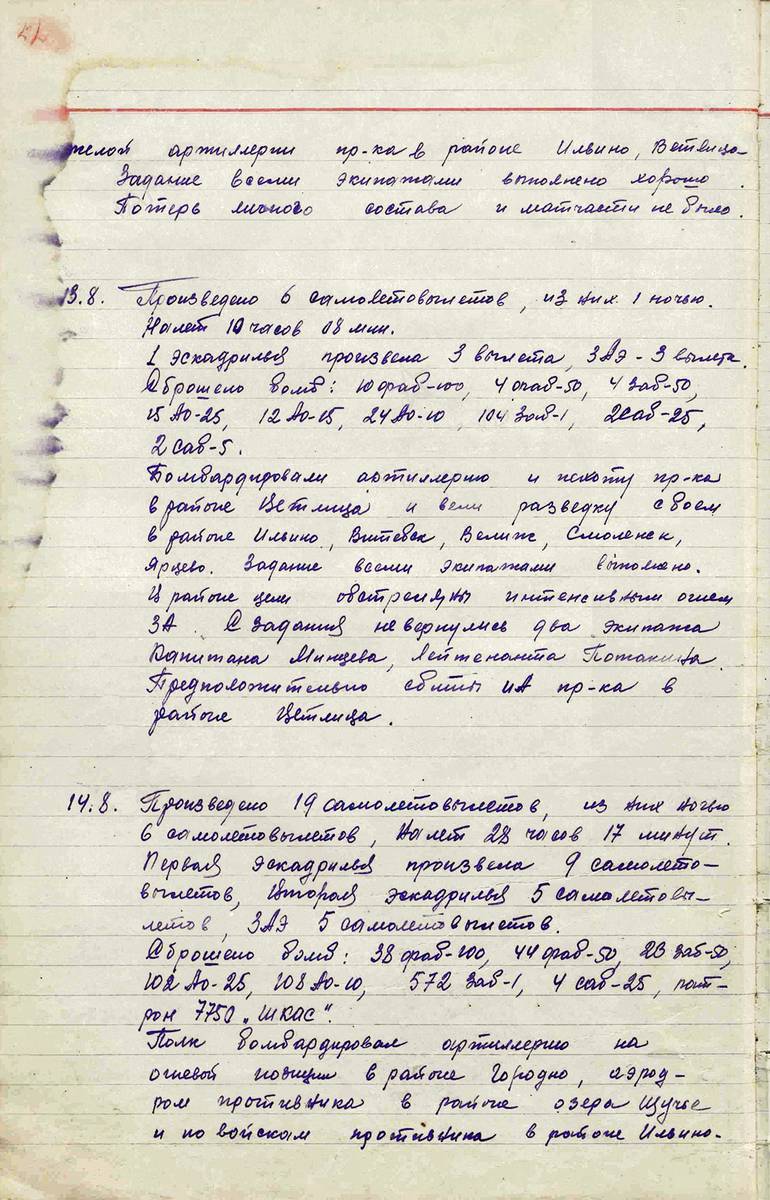 желой артиллерии пр-ка в районе Ильино, Ветлица
Задание всеми экипажами выполнено хорошо
Потерь личного состава и матчасти не было.
13.8. Произведено 6 самолетовылетов, из них 1 ночью.
Налет 10 часов 08 мин.
1 эскадрилья произвела 3 вылета, 3АЭ - 3 вылета.
Сброшено бомб: 10 фаб-100, 4 фаб-50, 4 Заб-50,
15 Ао-25, 12 Ао-15, 24 Ао-10, 104 Заб-1, 2 Саб-25,
2 саб-5.
Бомбардировали артиллерию и пехоту пр-ка
в районе Цетлица и вели разведку
в районе Ильино, Витебск, Велиж, Смоленск,
Ярцево. Задание всеми экипажами выполнено.
В районе цели обстреляны интенсивным огнем
ЗА. С задания не вернулись два экипажа
Капитана Минцева, Лейтенанта Потакина.
Предположительно сбиты ИА пр-ка в
районе Цетлица.
14.8. Произведено 19 самолетовылетов, из них ночью
6 самолетовылетов, Налет 28 часов 17 минут.
Первая эскадрилья произвела 9 самолето-
вылетов, Вторая эскадрилья 5 самолетовы-
летов, 3АЭ 5 самолетовылетов.
Сброшено бомб: 38 фаб-100, 44 фаб-50, 23 Заб-50,
102 Ао-25, 108 Ао-10, 572 Заб-1, 4 саб-25, пат-
рон 7750 „ШКАС".
Полк бомбардировал артиллерию на
огневой позиции в районе Городно, аэрод-
ром противника в районе озера Щучье
и по войскам противника в районе Ильино.